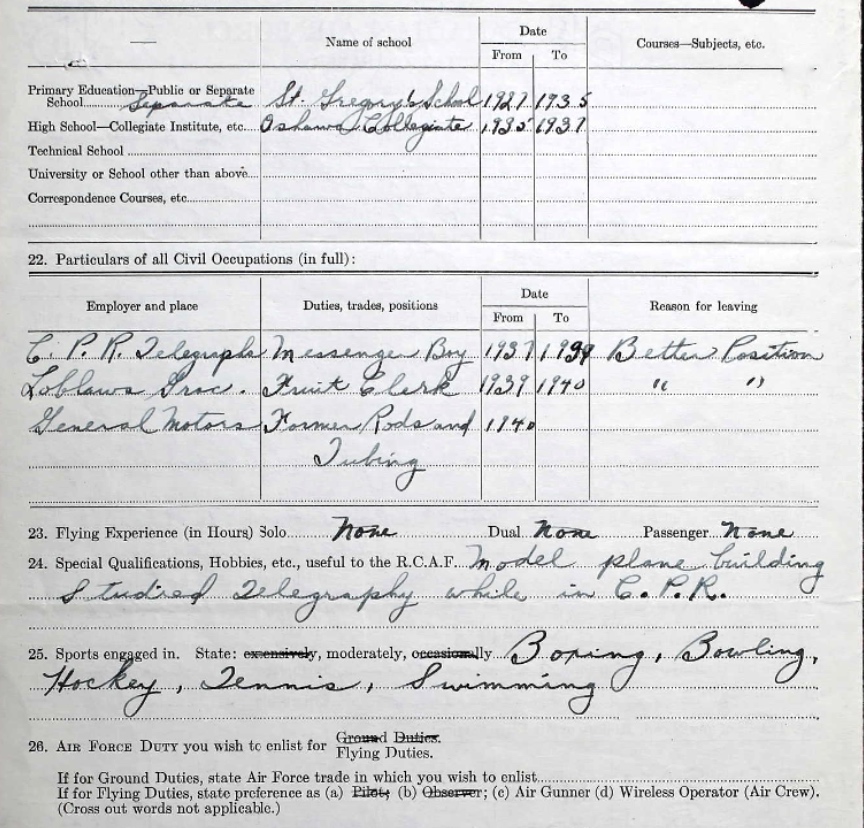 Name of school Date Courses—Subjects, etc.
From To
Primary Education—Public or Separate
School Separate St. Gregory's School 1927 1935
High School—Collegiate Institute, etc. Oshawa Collegiate 1935 1937
Technical School
University or School other than above
Correspondence Courses, etc.
22. Particulars of all Civil Occupations (in full):
Employer and place Duties, trades, positions Date Reason for leaving
From To
C. P. R. Telegraphs Messenger Boy 1937 1939 Better Position
Loblaws Groc. Fruit Clerk 1939 1940 " "
General Motors Former Rods and 1940
Tubing
23. Flying Experience (in Hours) Solo None Dual None Passenger None
24. Special Qualifications, Hobbies, etc., useful to the R.C.A.F. Model plane building
Studied Telegraphy while in C.P.R.
25. Sports engaged in. State: extensively, moderately, occasionally Boxing, Bowling,
Hockey, Tennis, Swimming
26. AIR FORCE DUTY you wish to enlist for Ground Duties.
Flying Duties.
If for Ground Duties, state Air Force trade in which you wish to enlist
If for Flying Duties, state preference as (a) Pilot; (b) Observer; (c) Air Gunner (d) Wireless Operator (Air Crew).
(Cross out words not applicable.)